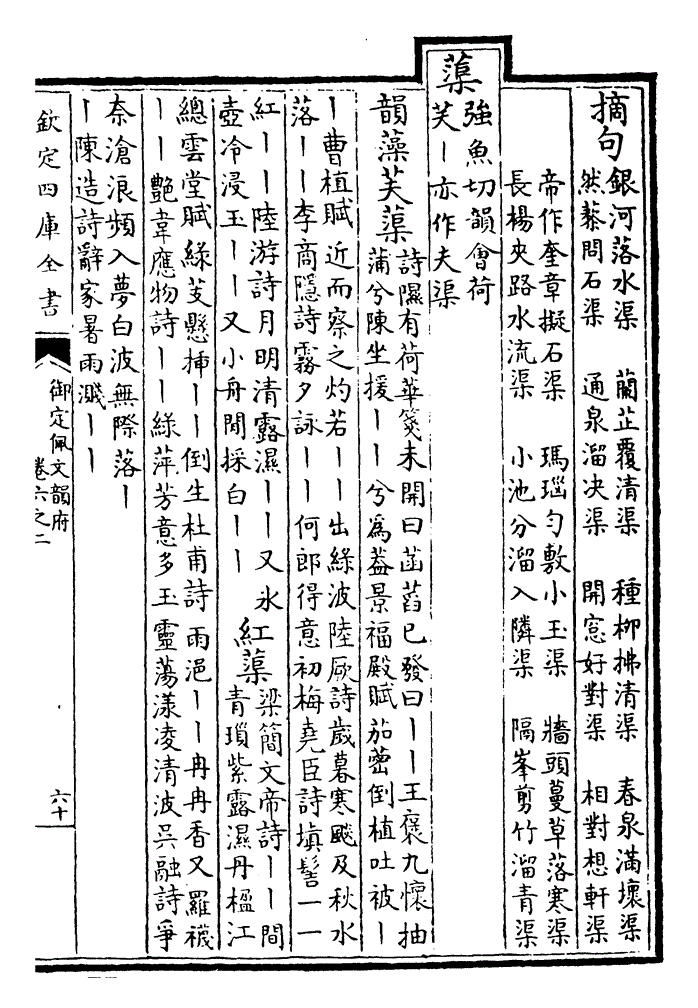 摘句銀河落水渠　蘭芷覆清渠　種柳拂清渠　春泉滿壞渠
然藜問石渠　通泉溜决渠　開窓好對渠　相對想軒渠
帝作奎章擬石渠　瑪瑙勻敷小玉渠　牆頭蔓草落寒渠
長楊夾路水流渠　小池分溜入隣渠　隔峯剪竹溜青渠
蕖
強魚切韻會荷
芙丨亦作夫渠
韻藻芙蕖
詩隰有荷華箋未開曰菡萏已發曰丨丨王褒九懷抽
蒲兮陳坐援丨丨兮爲葢景福殿賦茄蔤倒植吐被丨
丨曹植賦近而察之灼若丨丨出綠波陸厥詩歲暮寒飈及秋水
落丨丨李商隱詩霧夕詠丨丨何郎得意初梅堯臣詩塡髻一一
紅丨丨陸游詩月明清露濕丨丨又氷
壺冷浸玉丨丨又小舟閒採白丨丨
紅蕖
梁簡文帝詩丨丨間
青瑣紫露濕丹楹江
總雲堂賦綠芰懸揷丨丨倒生杜甫詩雨浥丨丨冉冉香又羅襪
丨丨艷韋應物詩丨丨綠萍芳意多玉靈蕩漾凌清波吳融詩爭
奈滄浪頻入夢白波無際落丨
丨陳造詩辭家暑雨濺丨丨
欽定四庫全書
御定佩文韻府
卷六之二
六十